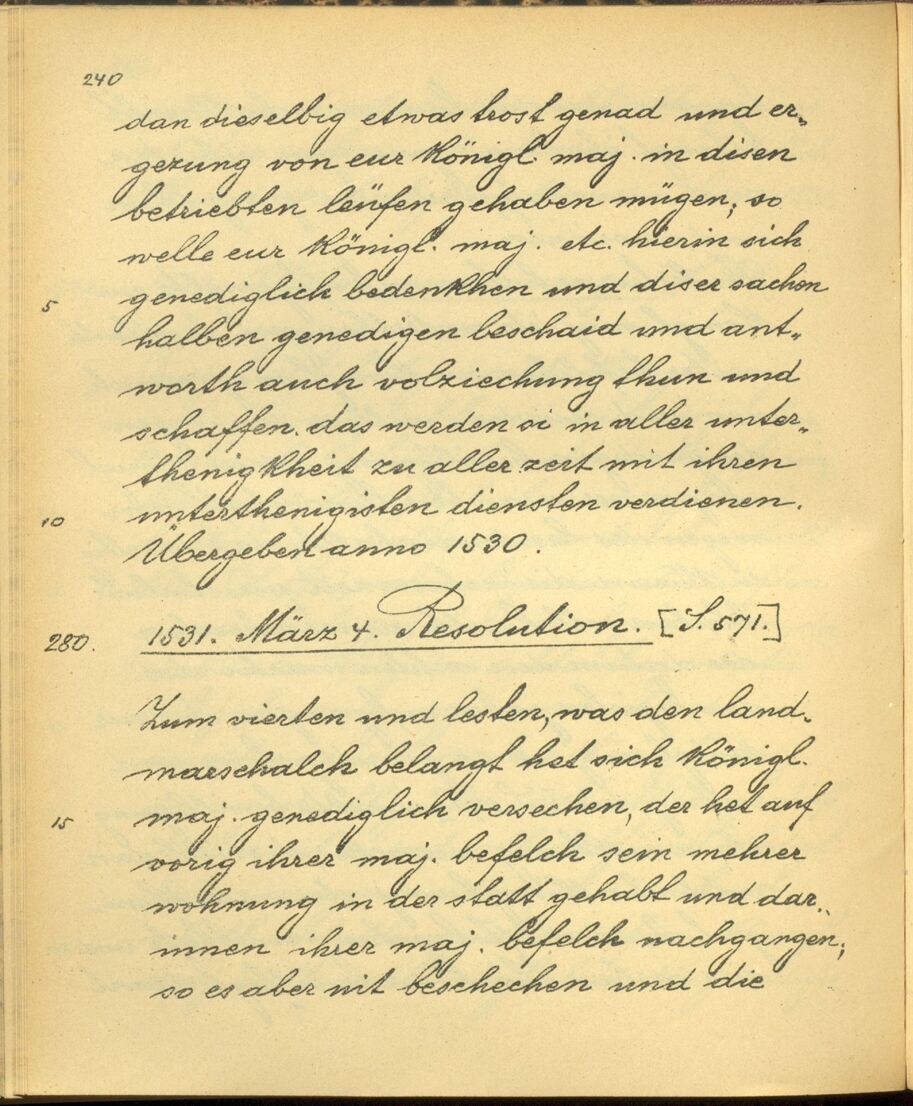 240
dan dieselbig etwas trost genad und er„
gezung von eur Königl. maj. in disen
betriebten leüfen gehaben mügen; so
welle eur Königl. maj. etc. hierin sich
5 genediglich bedenkhen und diser sachen
halben genedigen beschaid und ant„
worth auch volziechung thun und
schaffen. das werden si in aller unter„
thenigkheit zu aller zeit mit ihren
10 unterthenigisten diensten verdienen.
Übergeben anno 1530.
280. 1531. März 4. Resolution. [S. 571.]
Zum vierten und lesten, was den land„
marschalch belangt het sich Königl.
15 maj. genediglich versechen, der het auf
vorig ihrer maj. befelch sein mehrer
wohnung in der statt gehabt und dar„
innen ihrer maj. befelch nachgangen;
so es aber nit beschechen und die